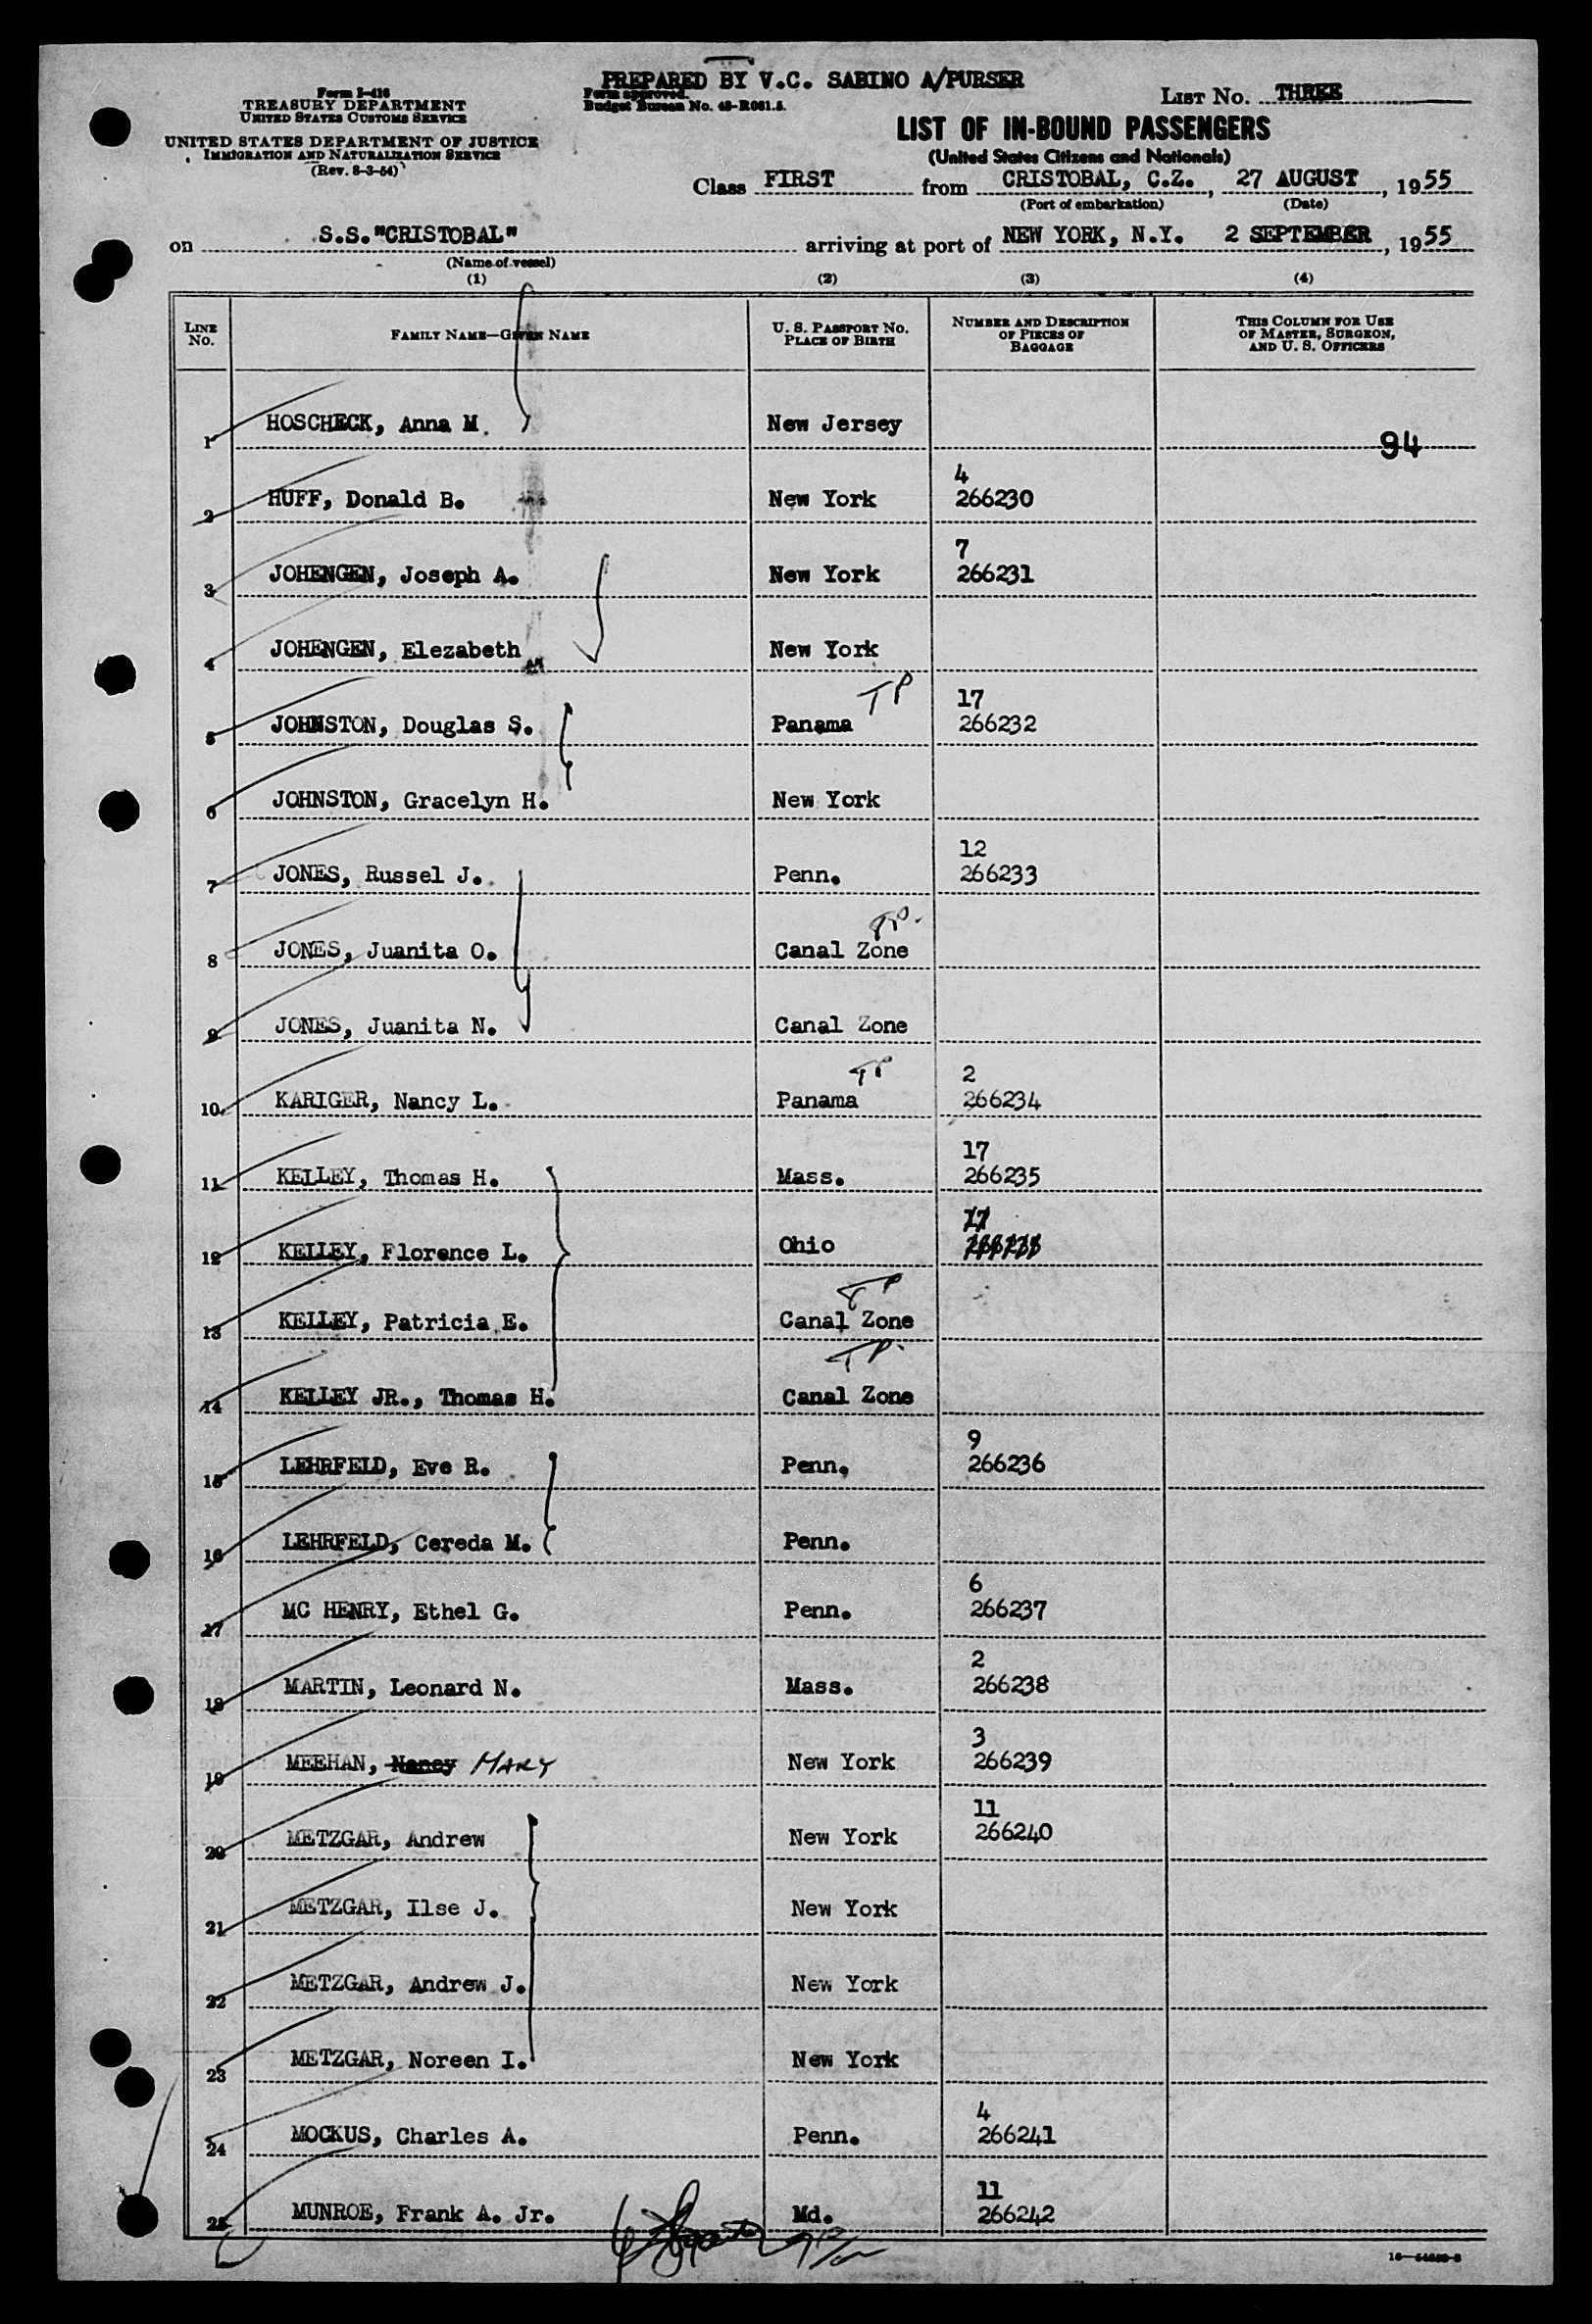 PREPARED BY V.C. SABINO A/PURSER
Form I-416
TREASURY DEPARTMENT
UNITED STATES CUSTOMS SERVICE
UNITED STATES DEPARTMENT OF JUSTICE
IMMIGRATION AND NATURALIZATION SERVICE
(Rev. 8-3-54)
Form approved.
Budget Bureau No. 43-R061.5.
LIST NO. THREE
LIST OF IN-BOUND PASSENGERS
(United States Citizens and Nationals)
Class FIRST from CRISTOBAL, C.Z., 27 AUGUST, 1955
(Port of embarkation) (Date)
on S.S."CRISTOBAL" arriving at port of NEW YORK, N.Y. 2 SEPTEMBER, 1955
(Name of vessel)
(1) (2) (3) (4)
LINE NO. FAMILY NAME—GIVEN NAME U. S. PASSPORT NO. PLACE OF BIRTH NUMBER AND DESCRIPTION OF PIECES OF BAGGAGE THIS COLUMN FOR USE OF MASTER, SURGEON, AND U. S. OFFICERS
1 HOSCHECK, Anna M. New Jersey
94
4
2 HUFF, Donald B. New York 266230
7
3 JOHENGEN, Joseph A. New York 266231
4 JOHENGEN, Elezabeth New York
TP 17
5 JOHNSTON, Douglas S. Panama 266232
6 JOHNSTON, Gracelyn H. New York
12
7 JONES, Russel J. Penn. 266233
TP.
8 JONES, Juanita O. Canal Zone
9 JONES, Juanita N. Canal Zone
TP 2
10 KARIGER, Nancy L. Panama 266234
17
11 KELLEY, Thomas H. Mass. 266235
17
12 KELLEY, Florence L. Ohio
TP
13 KELLEY, Patricia E. Canal Zone
TP.
14 KELLEY JR., Thomas H. Canal Zone
9
15 LEHRFELD, Eve R. Penn. 266236
16 LEHRFELD, Cereda M. Penn.
6
17 MC HENRY, Ethel G. Penn. 266237
2
18 MARTIN, Leonard N. Mass. 266238
3
19 MEEHAN, Nancy MARY New York 266239
11
20 METZGAR, Andrew New York 266240
21 METZGAR, Ilse J. New York
22 METZGAR, Andrew J. New York
23 METZGAR, Noreen I. New York
4
24 MOCKUS, Charles A. Penn. 266241
11
25 MUNROE, Frank A. Jr. Md. 266242